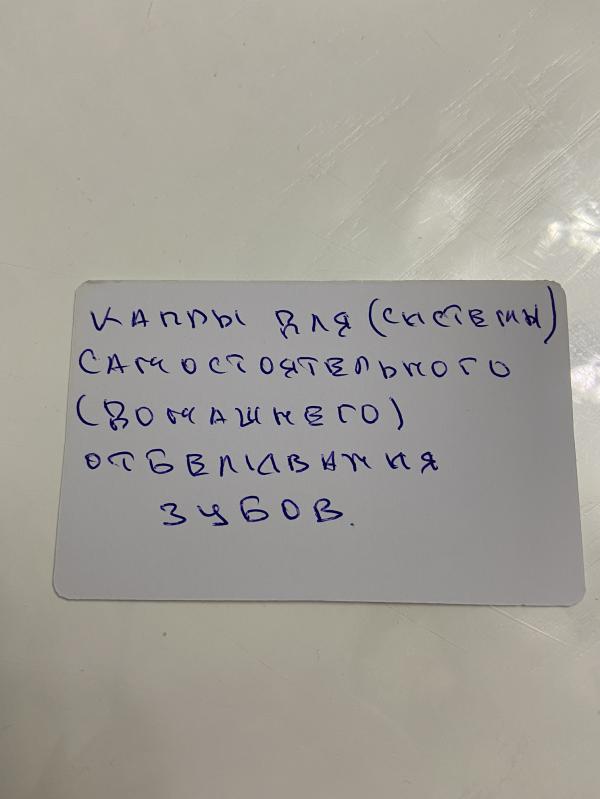 КАППЫ ДЛЯ (СИСТЕМЫ)
САМОСТОЯТЕЛЬНОГО
(ДОМАШНЕГО)
ОТБЕЛИВАНИЯ
ЗУБОВ.